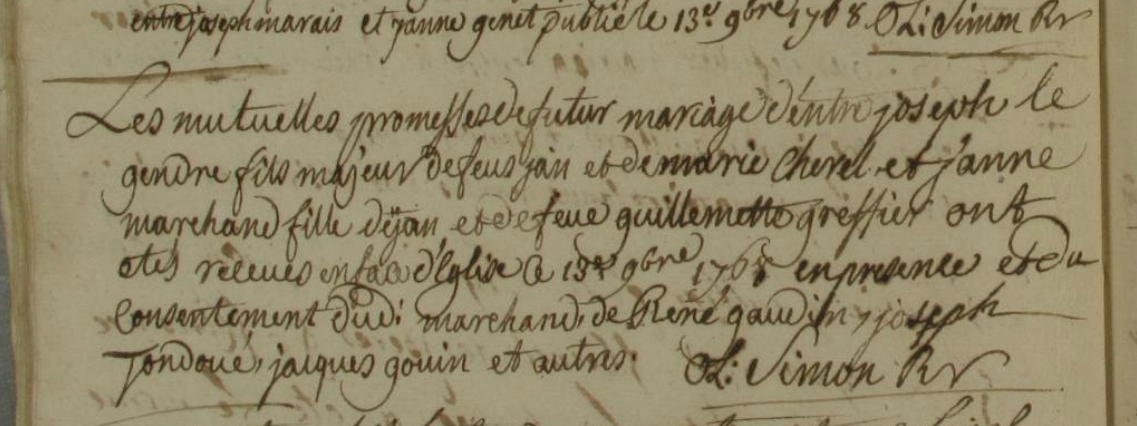 entre joseph marais et janne genet publié le 13.e 9bre 1768. OL: Simon Rr
Les mutuelles promesses de futur mariage d'entre joseph le
gendre fils majeur de feus jan et de marie Cherel et janne
marchand fille de jan et de feue guillemette greffier ont
etes receues en face d'Eglise ce 13.e 9bre 1768 en presence et du
consentement dud: marchand, de René gaudin, joseph
jondoué, jacques gouin et autres. OL: Simon Rr